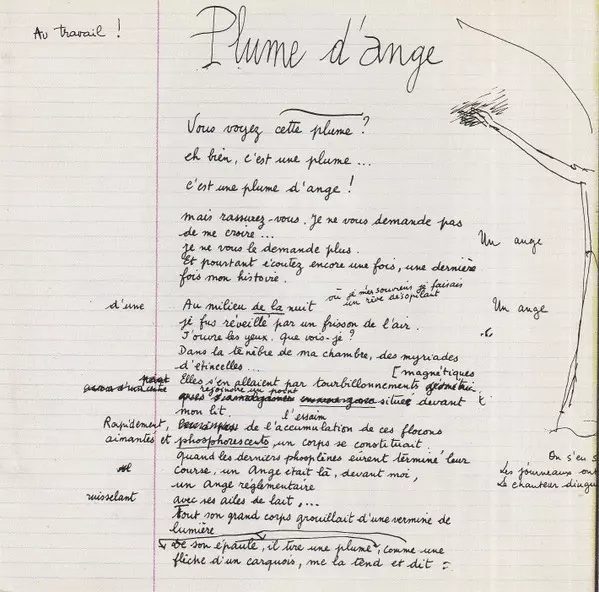 Au travail !
Plume d'ange
Vous voyez cette plume ?
eh bien, c'est une plume ...
c'est une plume d'ange !
mais rassurez-vous. Je ne vous demande pas
de me croire ...
je ne vous le demande plus.
Et pourtant écoutez encore une fois, une dernière
fois mon histoire.
Un ange
où je me souviens je faisais
un rêve désopilant
d'une
Au milieu de la nuit
Un ange
je fus réveillé par un frisson de l'air.
J'ouvre les yeux. Que vois-je ?
Dans la ténèbre de ma chambre, des myriades
d'étincelles ...
[magnétiques
Elles s'en allaient par tourbillonnements
rejoindre un point
situé devant
mon lit.
l'essaim
Rapidement, de l'accumulation de ces flocons
aimantés et phosphorescents un corps se constituait.
quand les derniers phosphènes eurent terminé leur
course, un Ange était là, devant moi,
un Ange réglementaire
ruisselant
avec ses ailes de lait, ...
Tout son grand corps grouillait d'une vermine de
lumière
De son épaule, il tire une plume, comme une
flèche d'un carquois, me la tend et dit :
On s'en
Les journeaux
Le chanteur